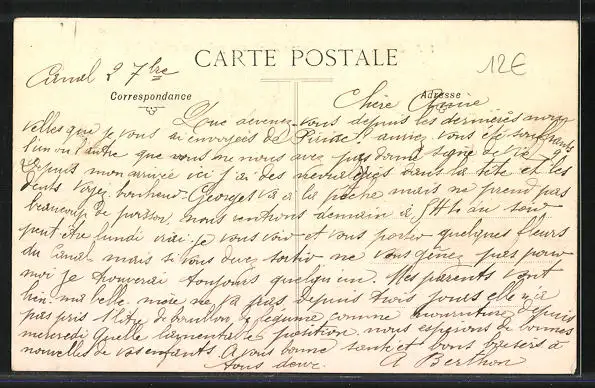 CARTE POSTALE
12€
Carnal 2 7bre
Correspondance
Adresse
Chère Amie
Que devenez-vous depuis les dernières nou
velles que je vous ai envoyées de Piriac? auriez vous été souffrante
l'un ou l'autre que vous ne nous avez pas donné signe de vie?
Depuis mon arrivée ici j'ai des névralgies dans la tête et les
dents voyez bonheur. Georges va à la pêche mais ne prend pas
beaucoup de poisson, nous rentrons demain à au soir
peut être lundi vrai. je vous voir et vous porter quelques fleurs
du Canal mais si vous devez sortir ne vous gênez pas pour
moi je trouverai toujours quelqu'un. Mes parents vont
bien. ma belle mère ne va pas, depuis trois jours elle n'a
pas pris 1 litre de bouillon de légume comme nourriture depuis
mercredi quelle lamentable position. nous espérons de bonnes
nouvelles de vos enfants. A vous bonne santé et bons baisers à
vous deux. A Berthon